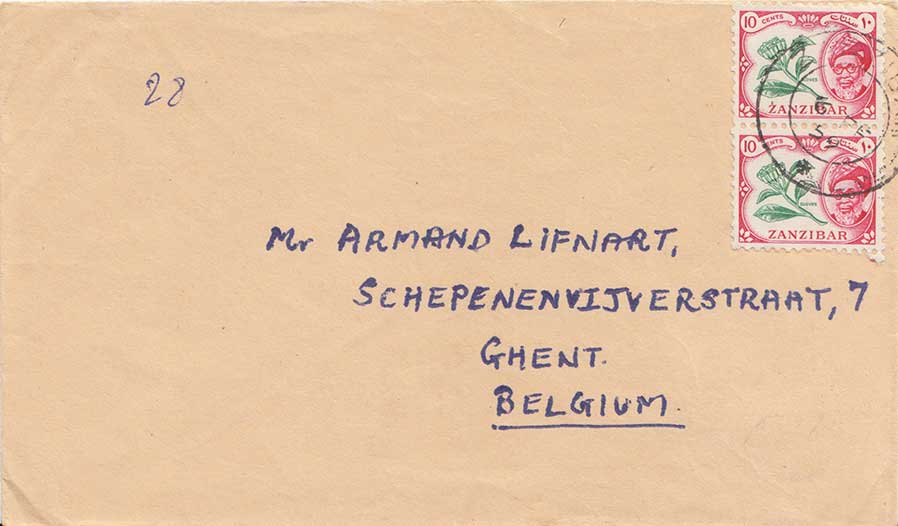 28
10 CENTS ١٠
CLOVES
ZANZIBAR
10 CENTS ١٠
CLOVES
ZANZIBAR
Mr ARMAND LIFNART,
SCHEPENENVIJVERSTRAAT, 7
GHENT.
BELGIUM.